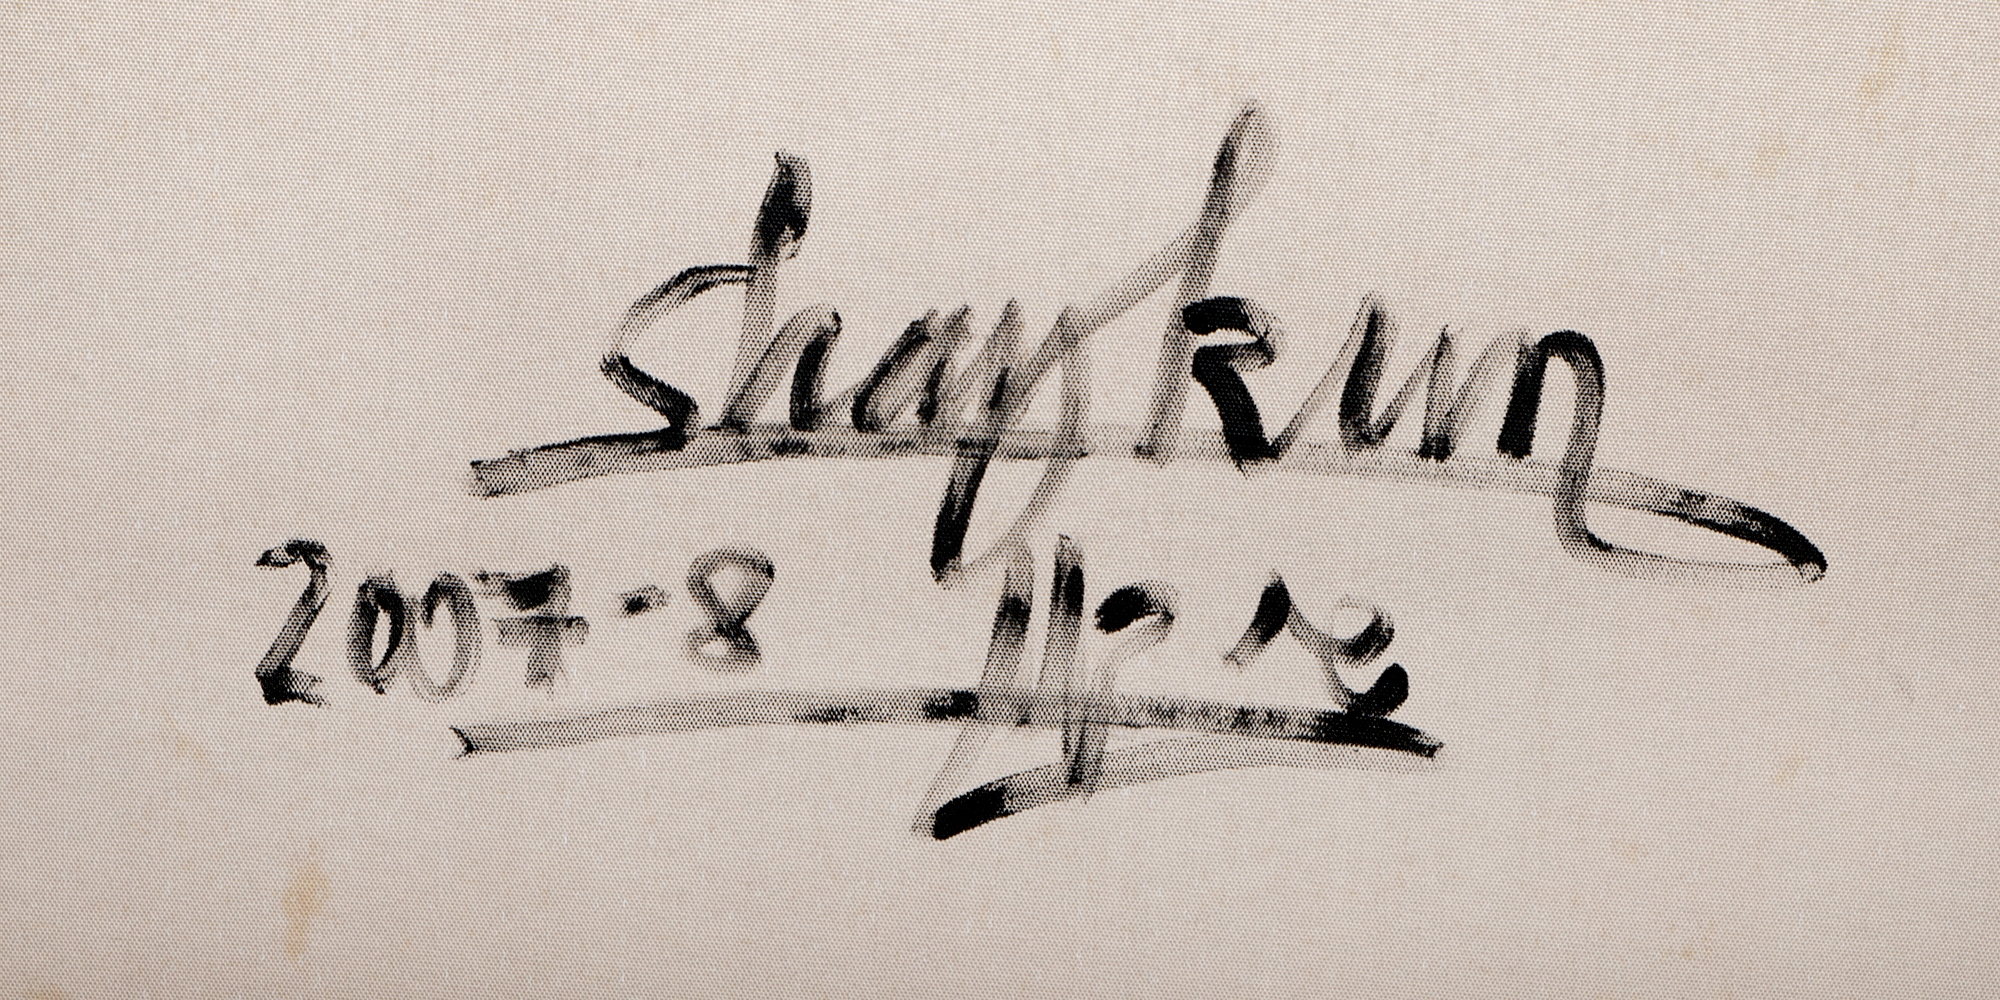 Shay Kun
2007-8